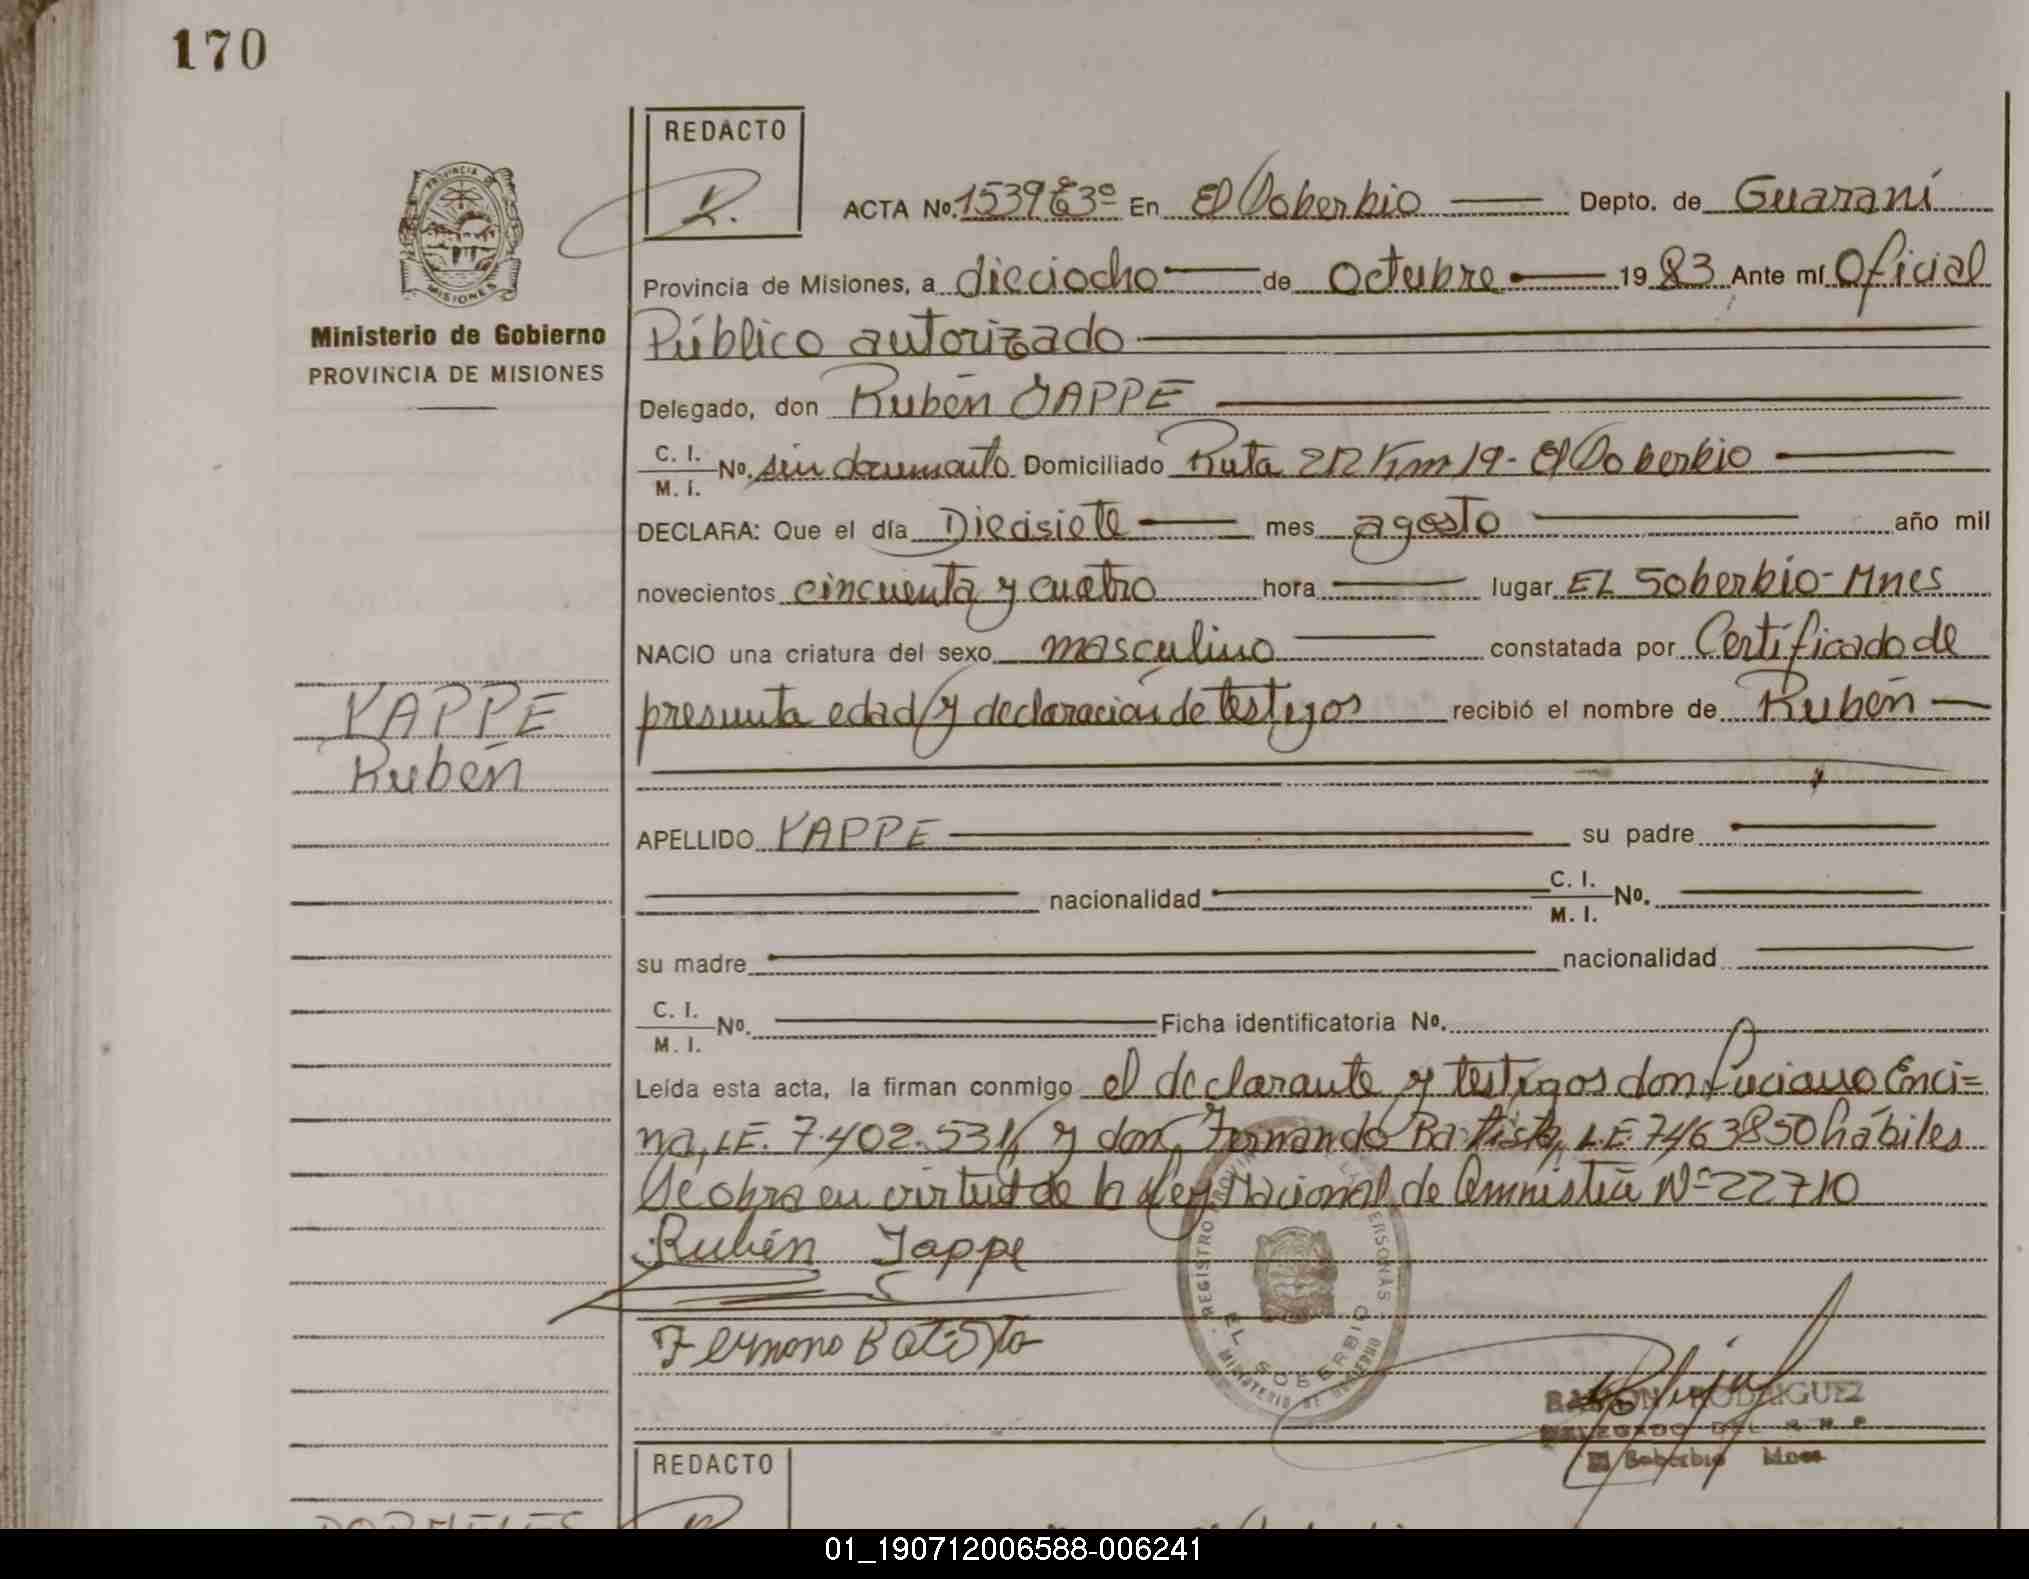 170
REDACTO
ACTA No. 1539 t3º En El Soberbio Depto. de Guaraní
Provincia de Misiones, a dieciocho de octubre 1983 Ante mí Oficial
Ministerio de Gobierno
PROVINCIA DE MISIONES
Público autorizado
Delegado, don Rubén YAPPE
C. I. M. I. No. sin documento Domiciliado Ruta 212 Km 19 - El Soberbio
DECLARA: Que el día Diecisiete mes agosto año mil
novecientos cincuenta y cuatro hora lugar EL Soberbio - Mnes
NACIO una criatura del sexo masculino constatada por Certificado de
presunta edad y declaración de testigos recibió el nombre de Rubén
YAPPE
Rubén
APELLIDO YAPPE su padre
nacionalidad C. I. M. I. No.
su madre nacionalidad
C. I. M. I. No. Ficha identificatoria No.
Leída esta acta, la firman conmigo el declarante y testigos don Luciano Enci=
na, L.E. 7.402.531, y don Fernando Batista, L.E. 7463850 hábiles
Se obra en virtud de la Ley Nacional de Amnistía Nº 22710
Rubén Yappe
Fernano Batista
REGISTRO PROVINCIAL DE LAS PERSONAS
EL SOBERBIO
MINISTERIO DE GOBIERNO
RAMON RODRIGUEZ
DELEGADO DEL R N P
El Soberbio Mnes
REDACTO
01_190712006588-006241